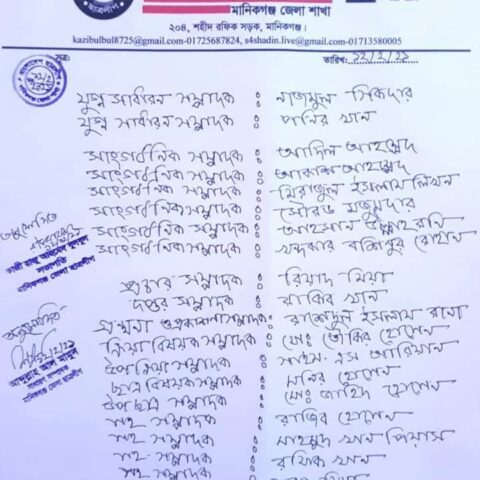 মানিকগঞ্জ জেলা শাখা
২০৪, শহীদ রফিক সড়ক, মানিকগঞ্জ।
kazibulbul8725@gmail.com-01725687824, s4shadin.live@gmail.com-01713580005
সূত্রঃ তারিখঃ ১২/২/২১
যুগ্ম সাধারন সম্পাদক ঃ নাজমুল সিকদার
যুগ্ম সাধারন সম্পাদক ঃ পানির খান
সাংগঠনিক সম্পাদক ঃ আদিল আহম্মেদ
সাংগঠনিক সম্পাদক ঃ আকাশ আহম্মেদ
সাংগঠনিক সম্পাদক ঃ মিরাজুল ইসলাম লিখন
সাংগঠনিক সম্পাদক ঃ সৌরভ মজুমদার
সাংগঠনিক সম্পাদক ঃ আহসান উল্লাহ রনি
সাংগঠনিক সম্পাদক ঃ খন্দকার রোহান
প্রচার সম্পাদক ঃ রিয়াদ মিয়া
দপ্তর সম্পাদক ঃ রাকিব খান
গ্রন্থনা ও প্রকাশনা সম্পাদক ঃ রাশেদুল ইসলাম রানা
ক্রিয়া বিষয়ক সম্পাদক ঃ মোঃ তৌকির হোসেন
উপ ক্রিয়া সম্পাদক ঃ সাইম এস আরিয়ান
ছাত্র বিষয়ক সম্পাদক ঃ মনির হোসেন
উপ ছাত্র সম্পাদক ঃ মোঃ জাহিদ হোসেন
সহ সম্পাদক ঃ রাজিব হোসেন
সহ সম্পাদক ঃ মাহমুদ খান পিয়াস
সহ সম্পাদক ঃ রফিক খান
সহ সম্পাদক ঃ
অনুমোদিত
কাজী রাজু আহমেদ বুলবুল
সভাপতি
মানিকগঞ্জ জেলা ছাত্রলীগ
অনুমোদিত
১২/২/২১
আব্দুল্লাহ আল মামুন
সাধারণ সম্পাদক
মানিকগঞ্জ জেলা ছাত্রলীগ